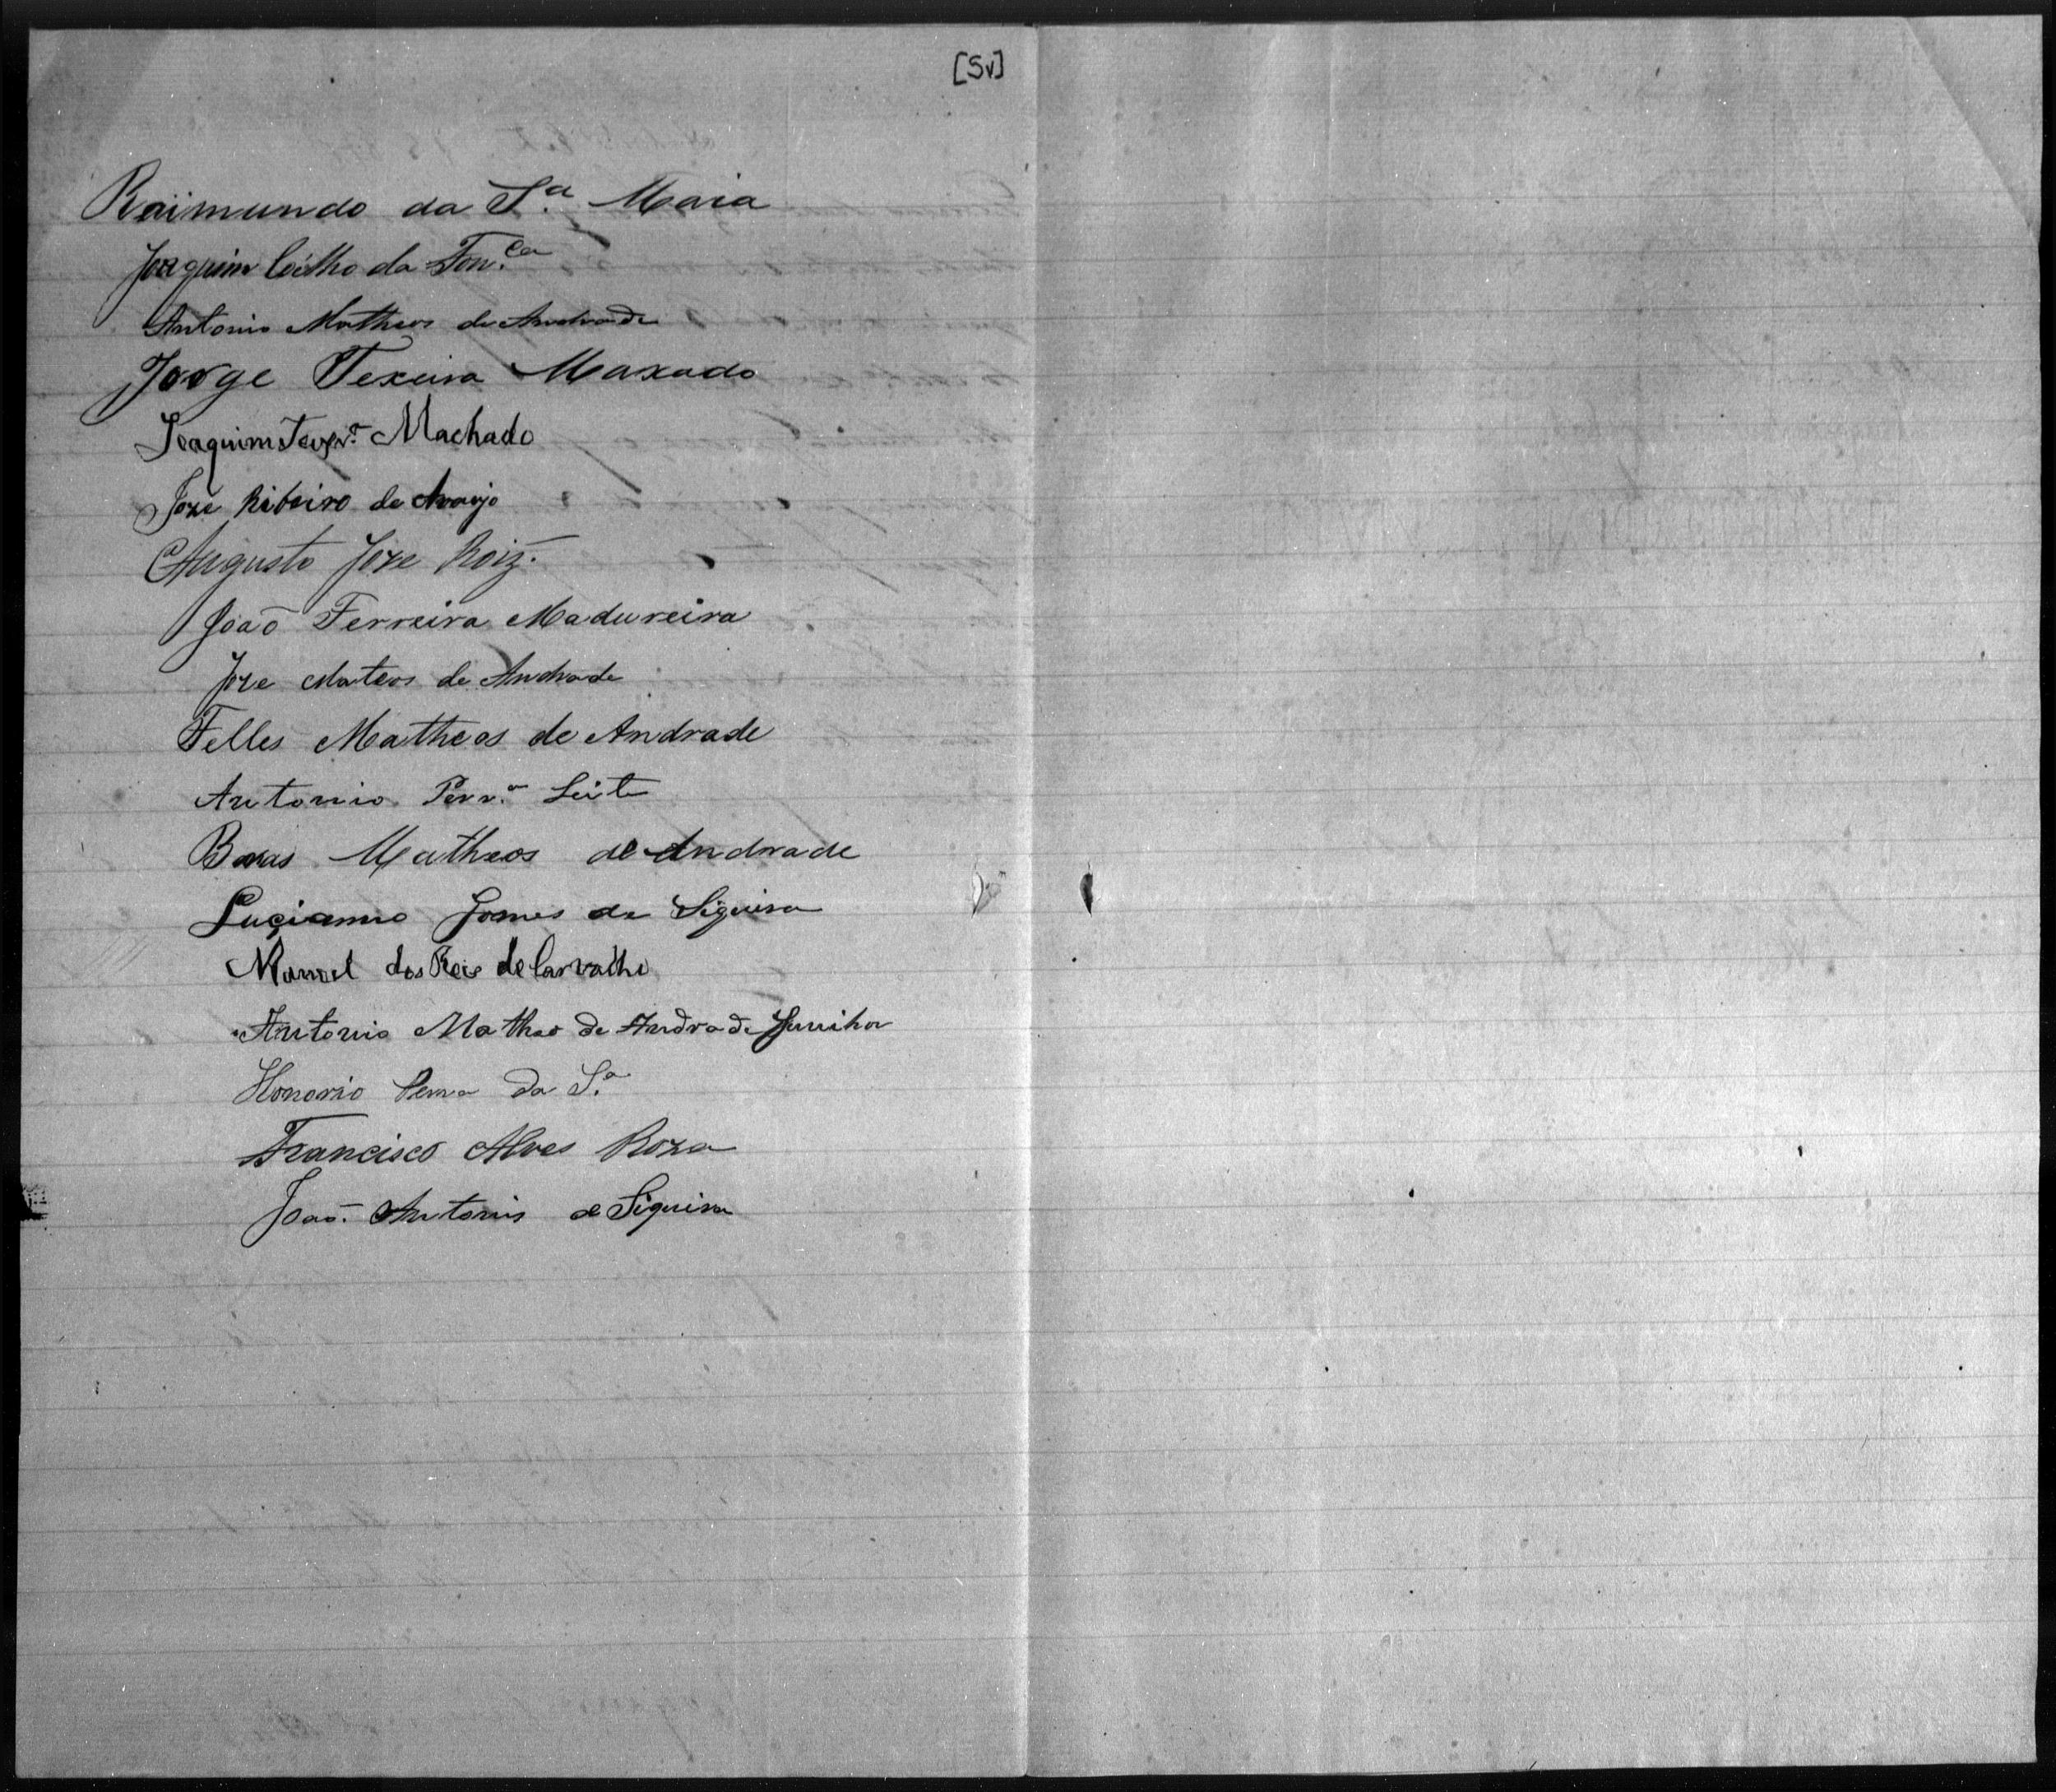 [5v]
Raimundo da S.ª Maia
Joaquim Coêlho da Fon.ca
Antonio Matheos de Andrade
Jorge Texeira Maxado
Joaquim Machado
Joze Ribeiro de Araujo
Augusto Joze Roiz.
João Ferreira Madureira
Joze Mateos de Andrade
Telles Matheos de Andrade
Antonio Perr.ª Leite
Bras Matheos de Andrade
Luçianno Gomes de Siqueira
Manoel dos Reis de Carvalho
Antonio Matheo de Andrade Junihor
Honorio da S.ª
Francisco Alves Roza
João Antonio de Siqueira